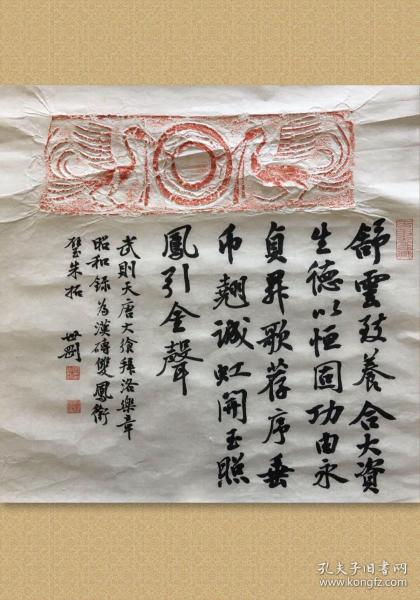 舒雲致養合大資
生德以恒固功由永
貞昇歌荐序垂
币翹誠虹開玉照
鳳引金聲
武則天唐大飨拜洛樂章
昭和錄為漢磚雙鳳銜
璧朱拓 世剛
孔夫子旧书网
www.kongfz.com